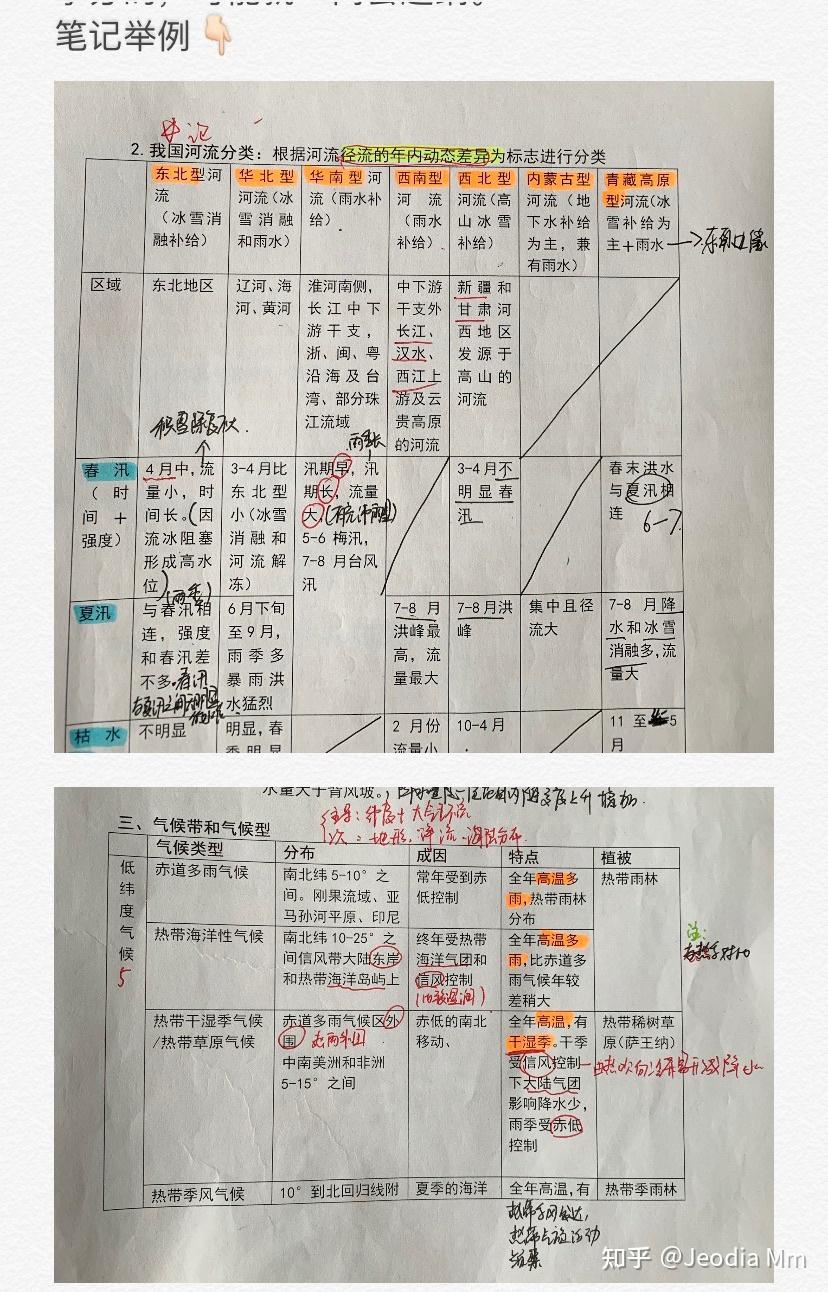 笔记举例👇🏻
2. 我国河流分类：根据河流径流的年内动态差异为标志进行分类
东北型河流（冰雪消融补给）
华北型河流（冰雪消融和雨水）
华南型河流（雨水补给）
西南型河流（雨水补给）
西北型河流（高山冰雪补给）
内蒙古型河流（地下水补给为主，兼有雨水）
青藏高原型河流（冰雪补给为主+雨水
区域
东北地区
辽河、海河、黄河
淮河南侧，长江中下游干支，浙、闽、粤沿海及台湾、部分珠江流域
中下游干支外长江、汉水、西江上游及云贵高原的河流
新疆和甘肃河西地区发源于高山的河流
春汛（时间+强度）
4月中，流量小，时间长。（因流冰阻塞形成高水位）
3-4月比东北型小（冰雪消融和河流解冻）
汛期早，汛期长，流量大，
5-6梅汛，7-8月台风汛
3-4月不明显春汛
春末洪水与夏汛相连
6-7
夏汛
与春汛相连，强度和春汛差不多
6月下旬至9月，雨季多暴雨洪水猛烈
7-8月洪峰最高，流量最大
7-8月洪峰
集中且径流大
7-8月降水和冰雪消融多，流量大
枯水
不明显
明显，春季明显
2月份流量小
10-4月
11至5月
三、气候带和气候型
气候类型
分布
成因
特点
植被
低纬度气候
5
赤道多雨气候
南北纬5-10°之间。刚果流域、亚马孙河平原、印尼
常年受到赤低控制
全年高温多雨，热带雨林分布
热带雨林
热带海洋性气候
南北纬10-25°之间信风带大陆东岸和热带海洋岛屿上
终年受热带海洋气团和信风控制
全年高温多雨，比赤道多雨气候年较差稍大
热带干湿季气候/热带草原气候
赤道多雨气候区外围
中南美洲和非洲5-15°之间
赤低的南北移动、
全年高温，有干湿季。干季受信风控制下大陆气团影响降水少，雨季受赤低控制
热带稀树草原（萨王纳）
热带季风气候
10°到北回归线附
夏季的海洋
全年高温，有
热带季雨林
知乎 @Jeodia Mm